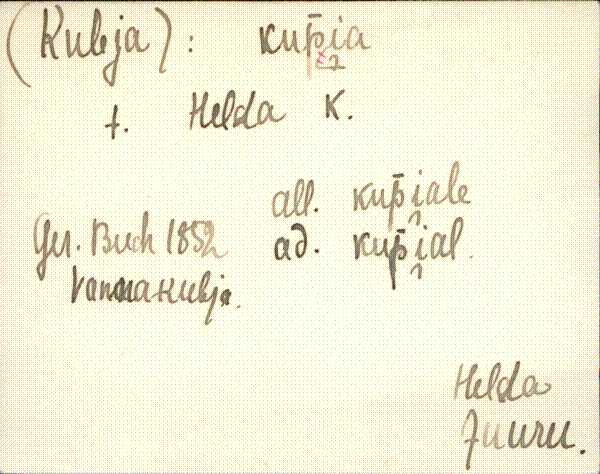 (Kubja): kup̄i̯a
t. Helda K.
all. kup̄i̯ale
Ger. Buch 1852 ad. kup̄i̯al.
Vannakubja.
Helda
Juuru.